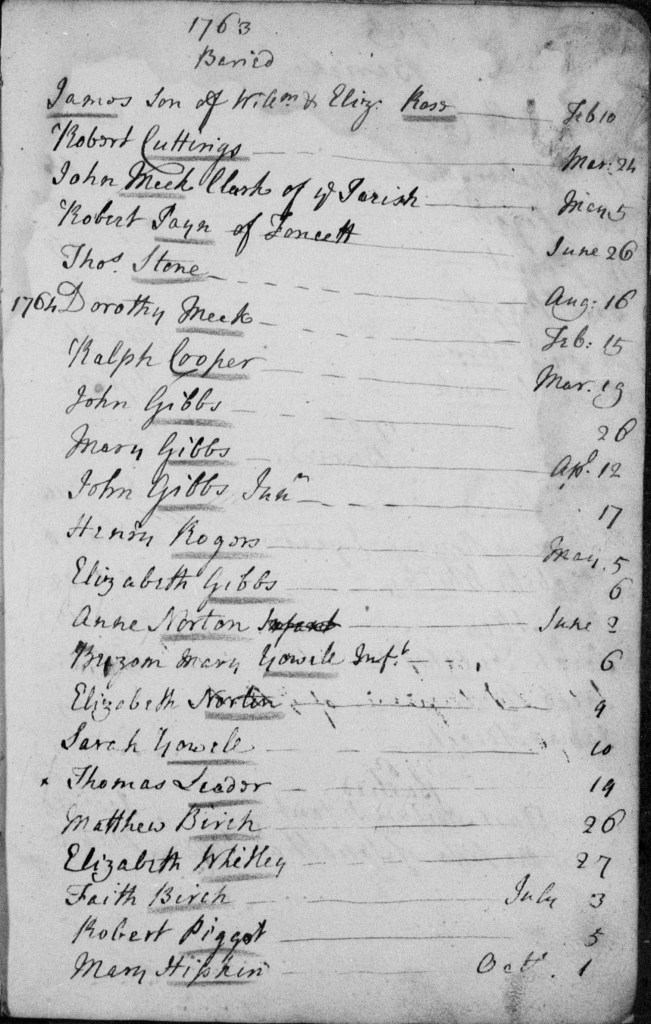 1763
Buried
James Son of Willm & Eliz: Ross Feb 10
Robert Cuttings Mar: 24
John Meek Clark of ye Parish May 5
Robert Payn of Foncett June 26
Thos. Stone Aug: 16
1764 Dorothy Meek Feb: 15
Ralph Cooper Mar. 19
John Gibbs 26
Mary Gibbs Apl. 12
John Gibbs Junr 17
Henry Rogers May. 5
Elizabeth Gibbs 6
Anne Norton Infant June 2
Buzom Mary Gowele Inft 6
Elizabeth Norton 9
Sarah Gowele 10
x Thomas Leader 19
Matthew Birch 26
Elizabeth Whitley 27
Faith Birch July 3
Robert Piggot 5
Mary Hipkin Octr. 1